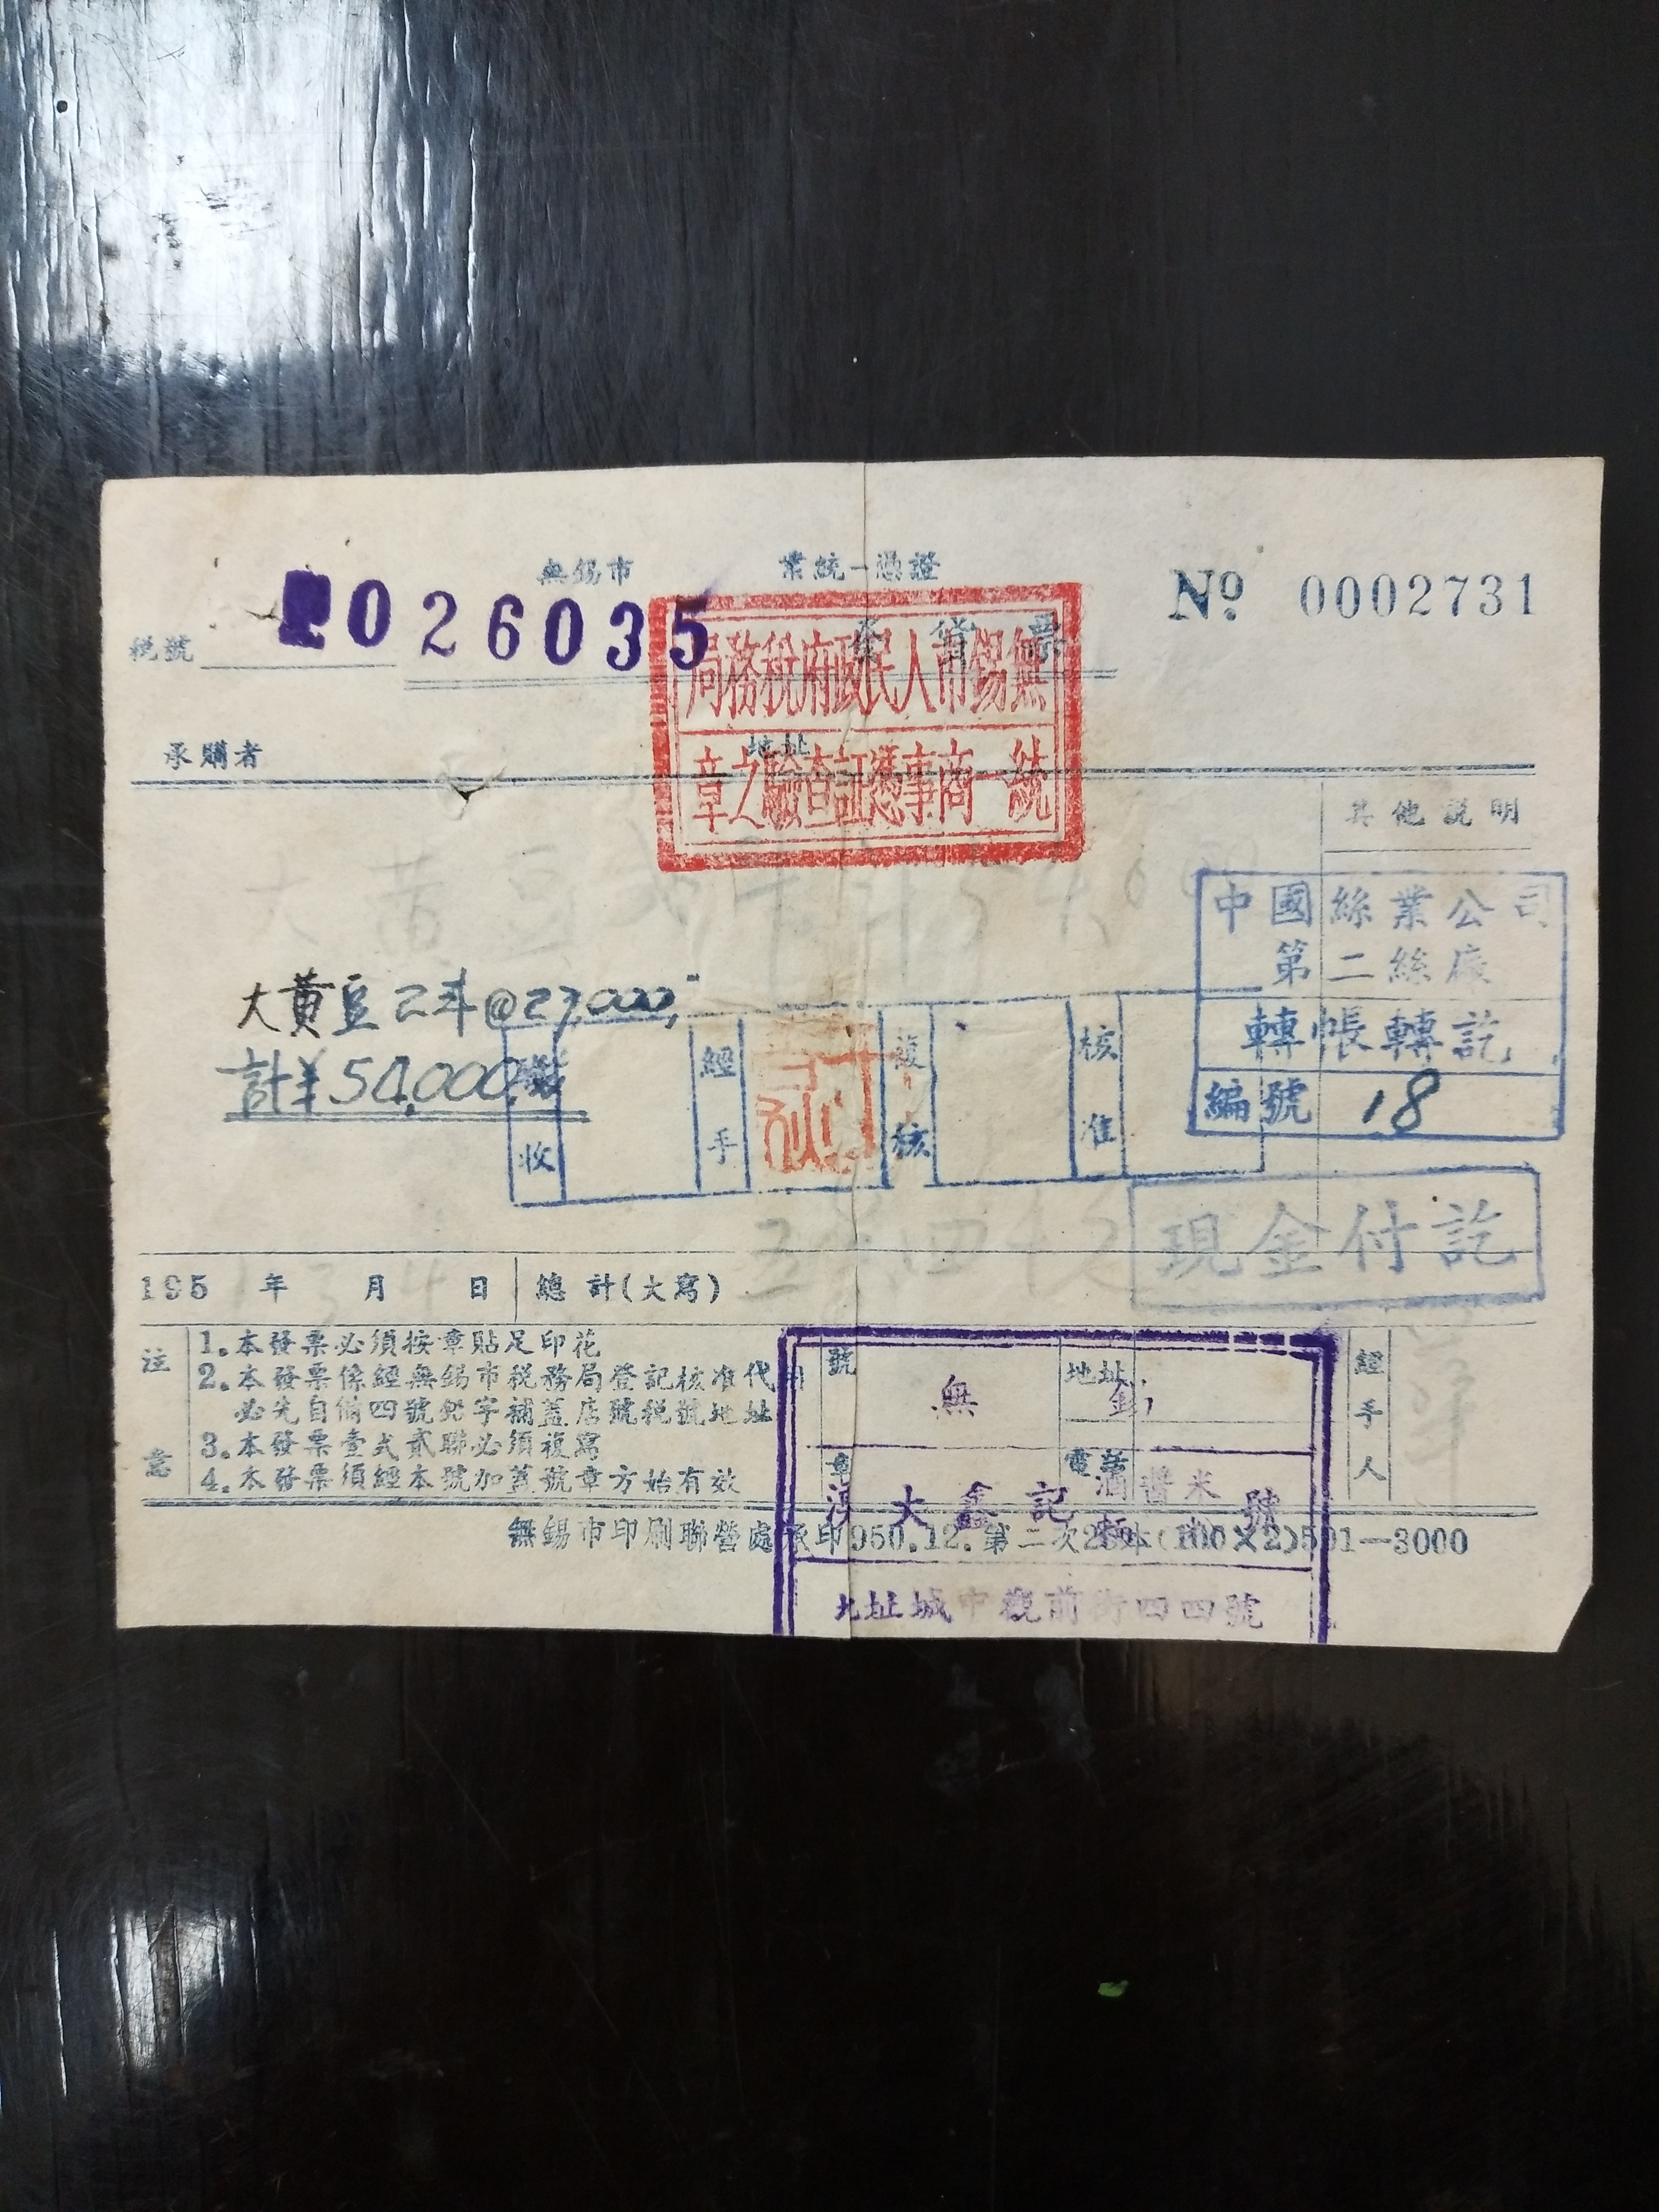 無錫市 業統一憑證
№ 0002731
發貨票
稅號 026035
無錫市人民政府稅務局
統一商事憑証查驗之章
承購者 地址
其他説明
大黃豆
中國絲業公司
第二絲廠
轉帳轉訖
編號 18
大黃豆2斗@27,000,
計¥54,000
收
經手
複核
核准
現金付訖
195 年 月 日 總計(大寫)
注意
1.本發票必須按章貼足印花
2.本發票係經無錫市稅務局登記核准代
必先自備四號鉛字補蓋店號稅號地址
3.本發票壹式貳聯必須複寫
4.本發票須經本號加蓋號章方始有效
號章
地址
電話
經手人
無錫
大鑫記 酒醬米 號
址城中觀前街四四號
無錫市印刷聯營處承印950.12.第二次 (100×2)501—3000